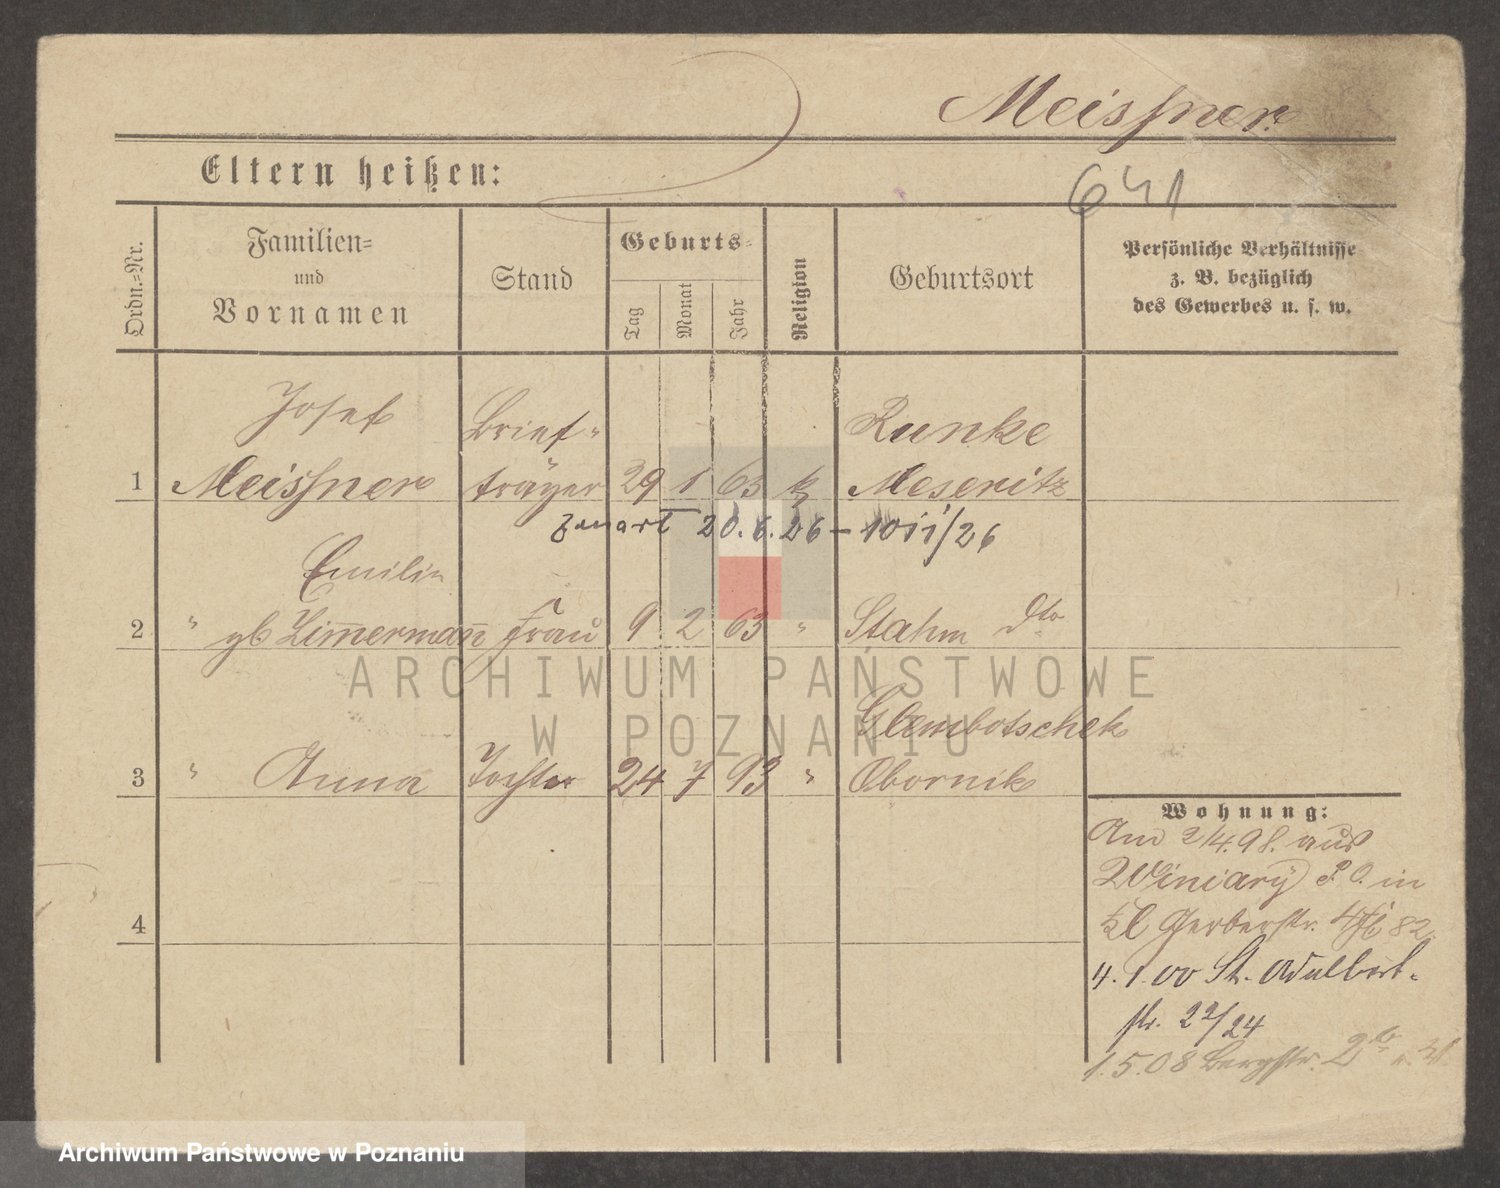 Meissner
641
Eltern heißen:
Ordn.=Nr.
Familien=
und
Vornamen
Stand
Geburts=
Tag
Monat
Jahr
Religion
Geburtsort
Persönliche Verhältnisse
z. B. bezüglich
des Gewerbes u. s. w.
Josef Brief- Runke
1 Meissner träger 29 1 63 k Meseritz
zmarł 20.6.26 – 10 /26
Emilie
2 " gb Zimmermann Frau 9 2 63 " Stahm dto
Glembotschek
3 " Anna Tochter 24 7 93 " Obornik
ARCHIWUM PAŃSTWOWE
W POZNANIU
Wohnung:
Am 2/4.98. aus
Winiary P.O. in
kl Gerberstr. 82
4. 1. 00 St. Adalbert-
str. 22/24
1.5.08 Bergstr. 2b
4
Archiwum Państwowe w Poznaniu